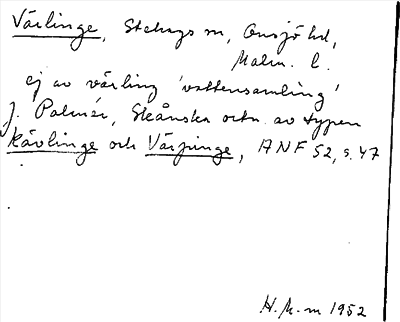 Värlinge, Stehags sn, Onsjö hd,
Malm. l.
ej av värling 'vattensamling'
J. Palmér, Skånska ortn. av typen
Kävlinge och Värpinge, ANF 52, s. 47
H.M-m 1952